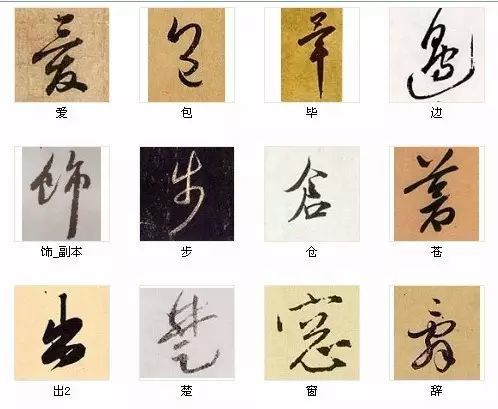 爱 包 毕 边
饰_副本 步 仓 苍
出2 楚 窗 辞